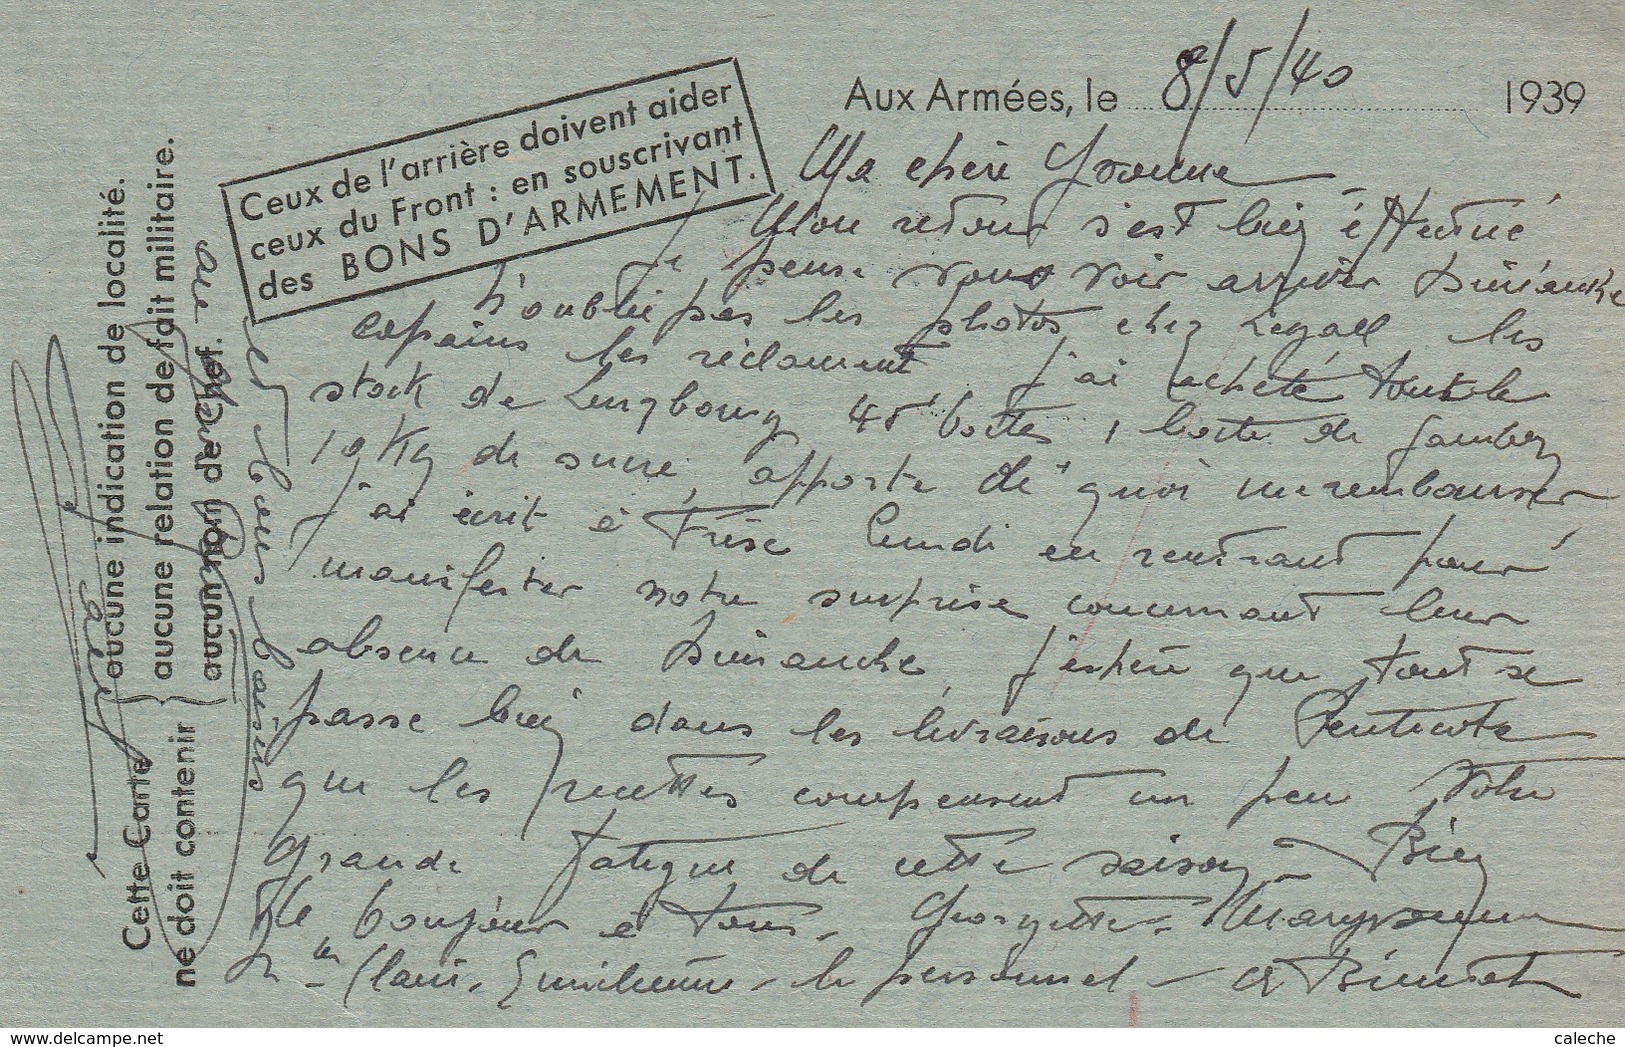 Aux Armées, le 8/5/40 1939
Ceux de l'arrière doivent aider
ceux du Front : en souscrivant
des BONS D'ARMEMENT.
Ma chère Yvonne
Mon retour s'est bien éffectué
Je pense vous voir arriver Dimanche
N'oublie pas les photos chez Legall les
copains les réclament, j'ai acheté tout le
stock de 45 boites, 1 boite de Jambon
19 Kg de sucre, apporte de quoi me rembourser
J'ai écrit à Lundi en rentrant pour
manifester notre surprise concernant leur
absence de Dimanche, J'espère que tout se
passe bien dans les livraisons de Pentecote
que les recettes compensent un peu Votre
grande fatigue de cette saison – Bien
le bonjour à tous, Georgette, Maryvonne
le personnel – à Bientot
et bons baisers
Cette Carte
ne doit contenir
aucune indication de localité.
aucune relation de fait militaire.
aucun nom de chef.
caleche